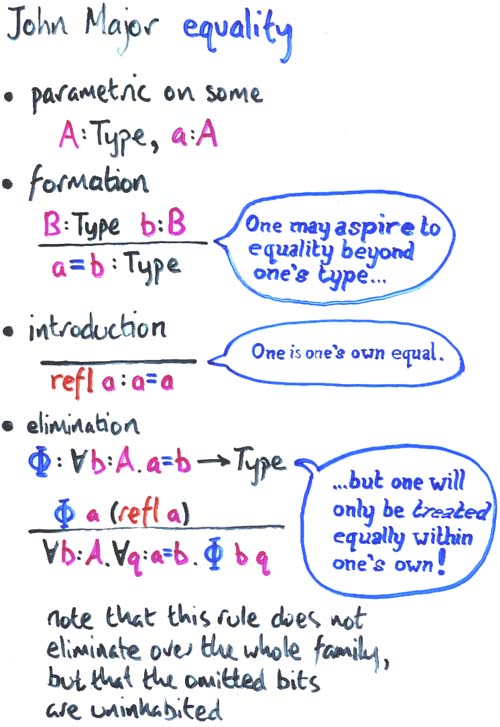 John Major equality
• parametric on some
A:Type, a:A
• formation
B:Type b:B
a=b : Type
One may aspire to
equality beyond
one's type...
• introduction
refl a : a=a
One is one's own equal.
• elimination
Φ : ∀b:A. a=b → Type
Φ a (refl a)
∀b:A. ∀q:a=b. Φ b q
...but one will
only be treated
equally within
one's own!
note that this rule does not
eliminate over the whole family,
but that the omitted bits
are uninhabited